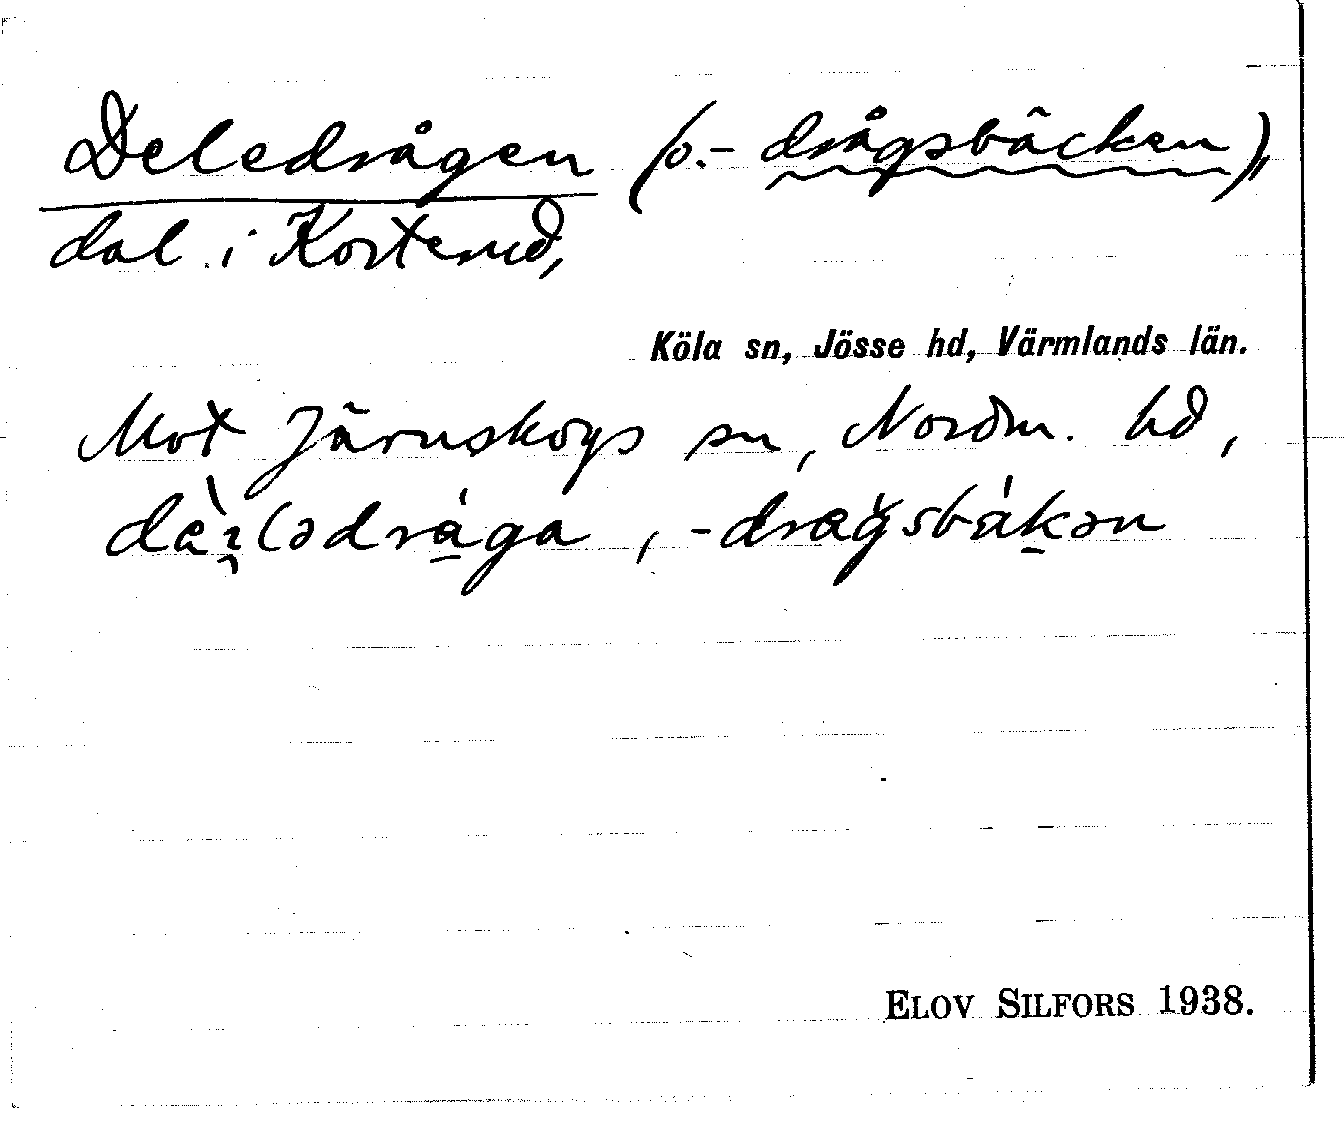 Deledrågen (o.- drågsbäcken),
dal i Korterud,
Köla sn, Jösse hd, Värmlands län.
Mot Järnskogs sn, Nordm. hd,
ELOV SILFORS 1938.